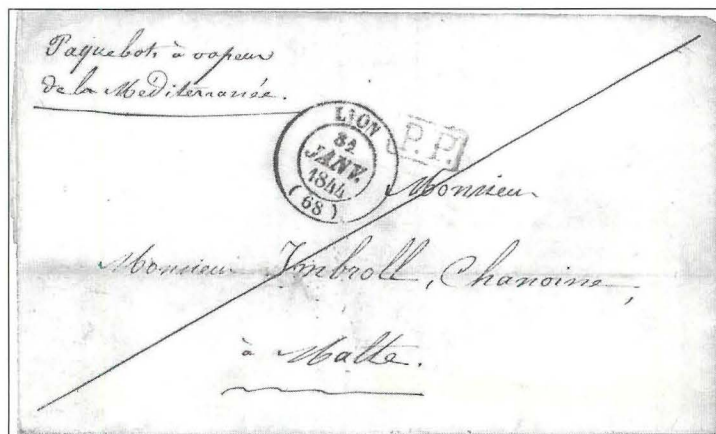 Paquebots à vapeur
de la Méditerranée.
LYON
31
JANV.
1844
(68)
P.P.
Monsieur
Monsieur Imbroll, Chanoine,
à Malte.